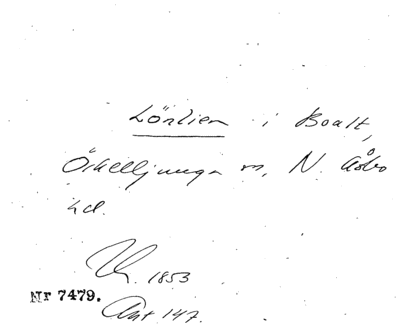 Lönlien i Boalt,
Örkelljunga sn, N. Åsbo
hd.
Uh. 1853
Nr 7479.
Ant 147.